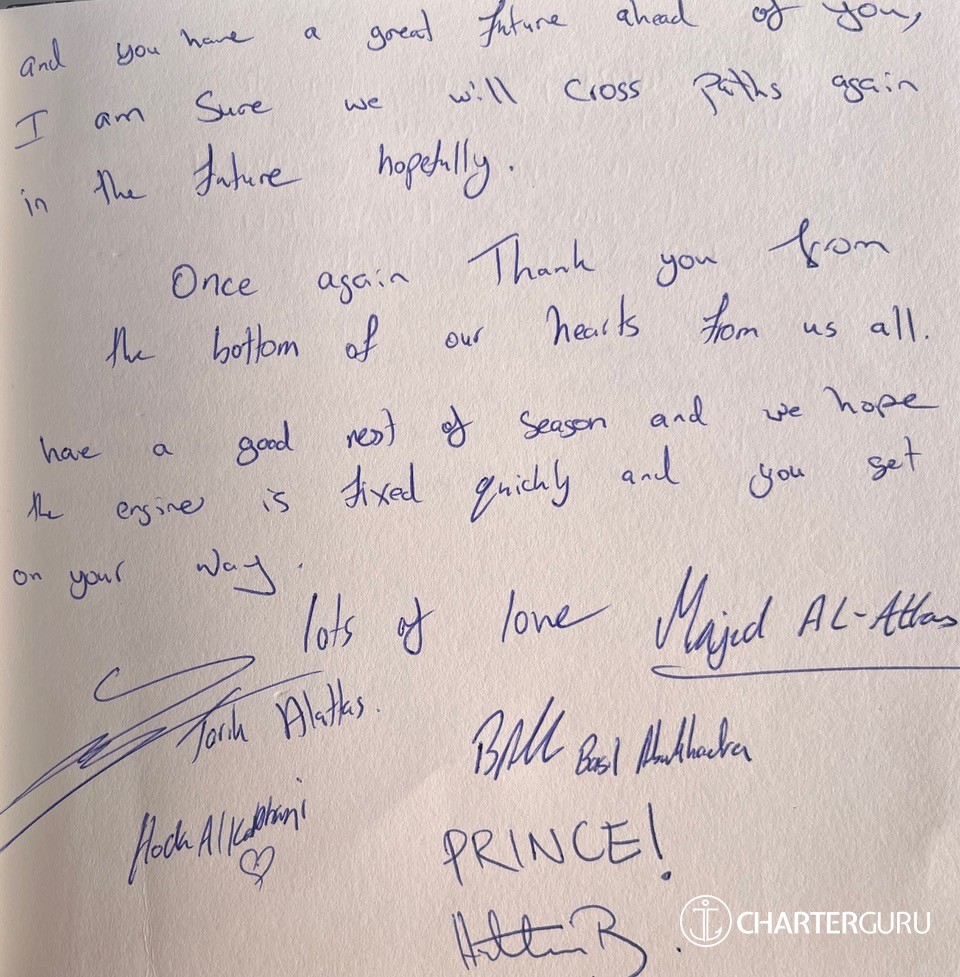 and you have a great future ahead of you,
I am Sure we will cross paths again
in the future hopefully.
Once again Thank you from
the bottom of our hearts from us all.
have a good rest of season and we hope
the engine is fixed quickly and you get
on your way.
lots of love Majed AL-Attas
Tarik Alattas.
Basil Abukhadra
PRINCE!
CHARTERGURU